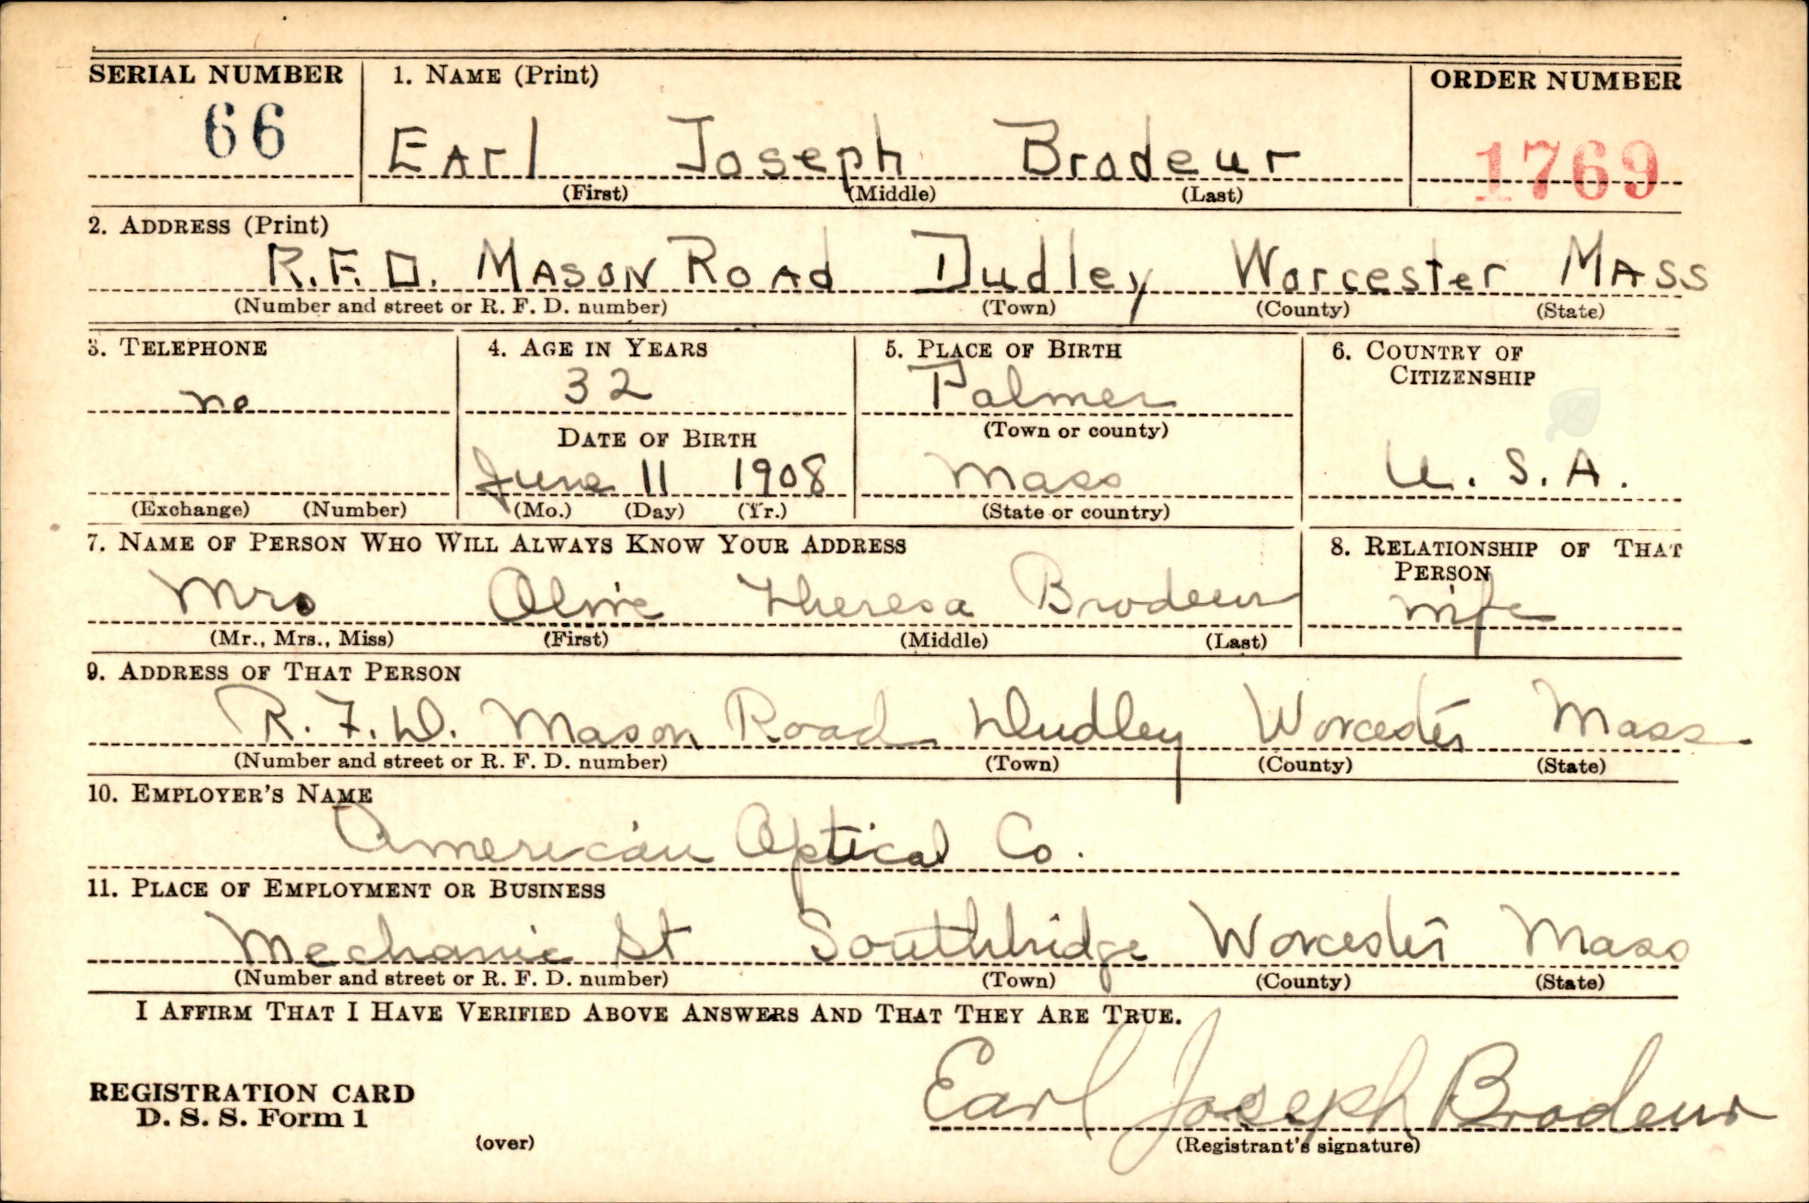 SERIAL NUMBER 1. NAME (Print) ORDER NUMBER
66 Earl Joseph Brodeur 1769
(First) (Middle) (Last)
2. ADDRESS (Print)
R.F.D. MASON ROAd Dudley Worcester MASS
(Number and street or R. F. D. number) (Town) (County) (State)
3. TELEPHONE 4. AGE IN YEARS 5. PLACE OF BIRTH 6. COUNTRY OF
CITIZENSHIP
no 32 Palmer
DATE OF BIRTH (Town or county)
June 11 1908 Mass U.S.A.
(Exchange) (Number) (Mo.) (Day) (Yr.) (State or country)
7. NAME OF PERSON WHO WILL ALWAYS KNOW YOUR ADDRESS 8. RELATIONSHIP OF THAT
PERSON
Mrs Olive Theresa Brodeur wife
(Mr., Mrs., Miss) (First) (Middle) (Last)
9. ADDRESS OF THAT PERSON
R.F.D. Mason Road Dudley Worcester Mass
(Number and street or R. F. D. number) (Town) (County) (State)
10. EMPLOYER'S NAME
American Optical Co.
11. PLACE OF EMPLOYMENT OR BUSINESS
Mechanic St Southbridge Worcester Mass
(Number and street or R. F. D. number) (Town) (County) (State)
I AFFIRM THAT I HAVE VERIFIED ABOVE ANSWERS AND THAT THEY ARE TRUE.
REGISTRATION CARD
D. S. S. Form 1 Earl Joseph Brodeur
(over) (Registrant's signature)